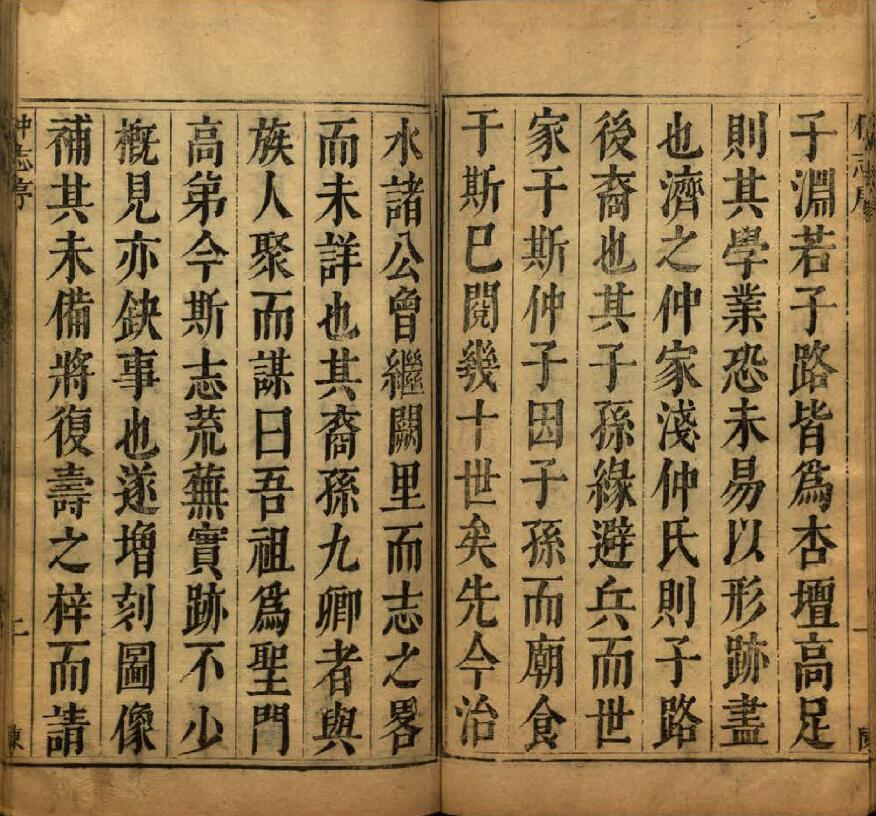 子淵若子路皆爲杏壇高足
則其學業恐未易以形跡盡
也濟之仲家淺仲氏則子路
後裔也其子孫緣避兵而世
家于斯仲子因子孫而廟食
于斯巳閱幾十世矣先今治
水諸公曾繼闕里而志之畧
而未詳也其裔孫九卿者與
族人聚而謀曰吾祖爲聖門
高第今斯志荒蕪實跡不少
概見亦缺事也遂增刻圖像
補其未備將復壽之梓而請
仲志序
二